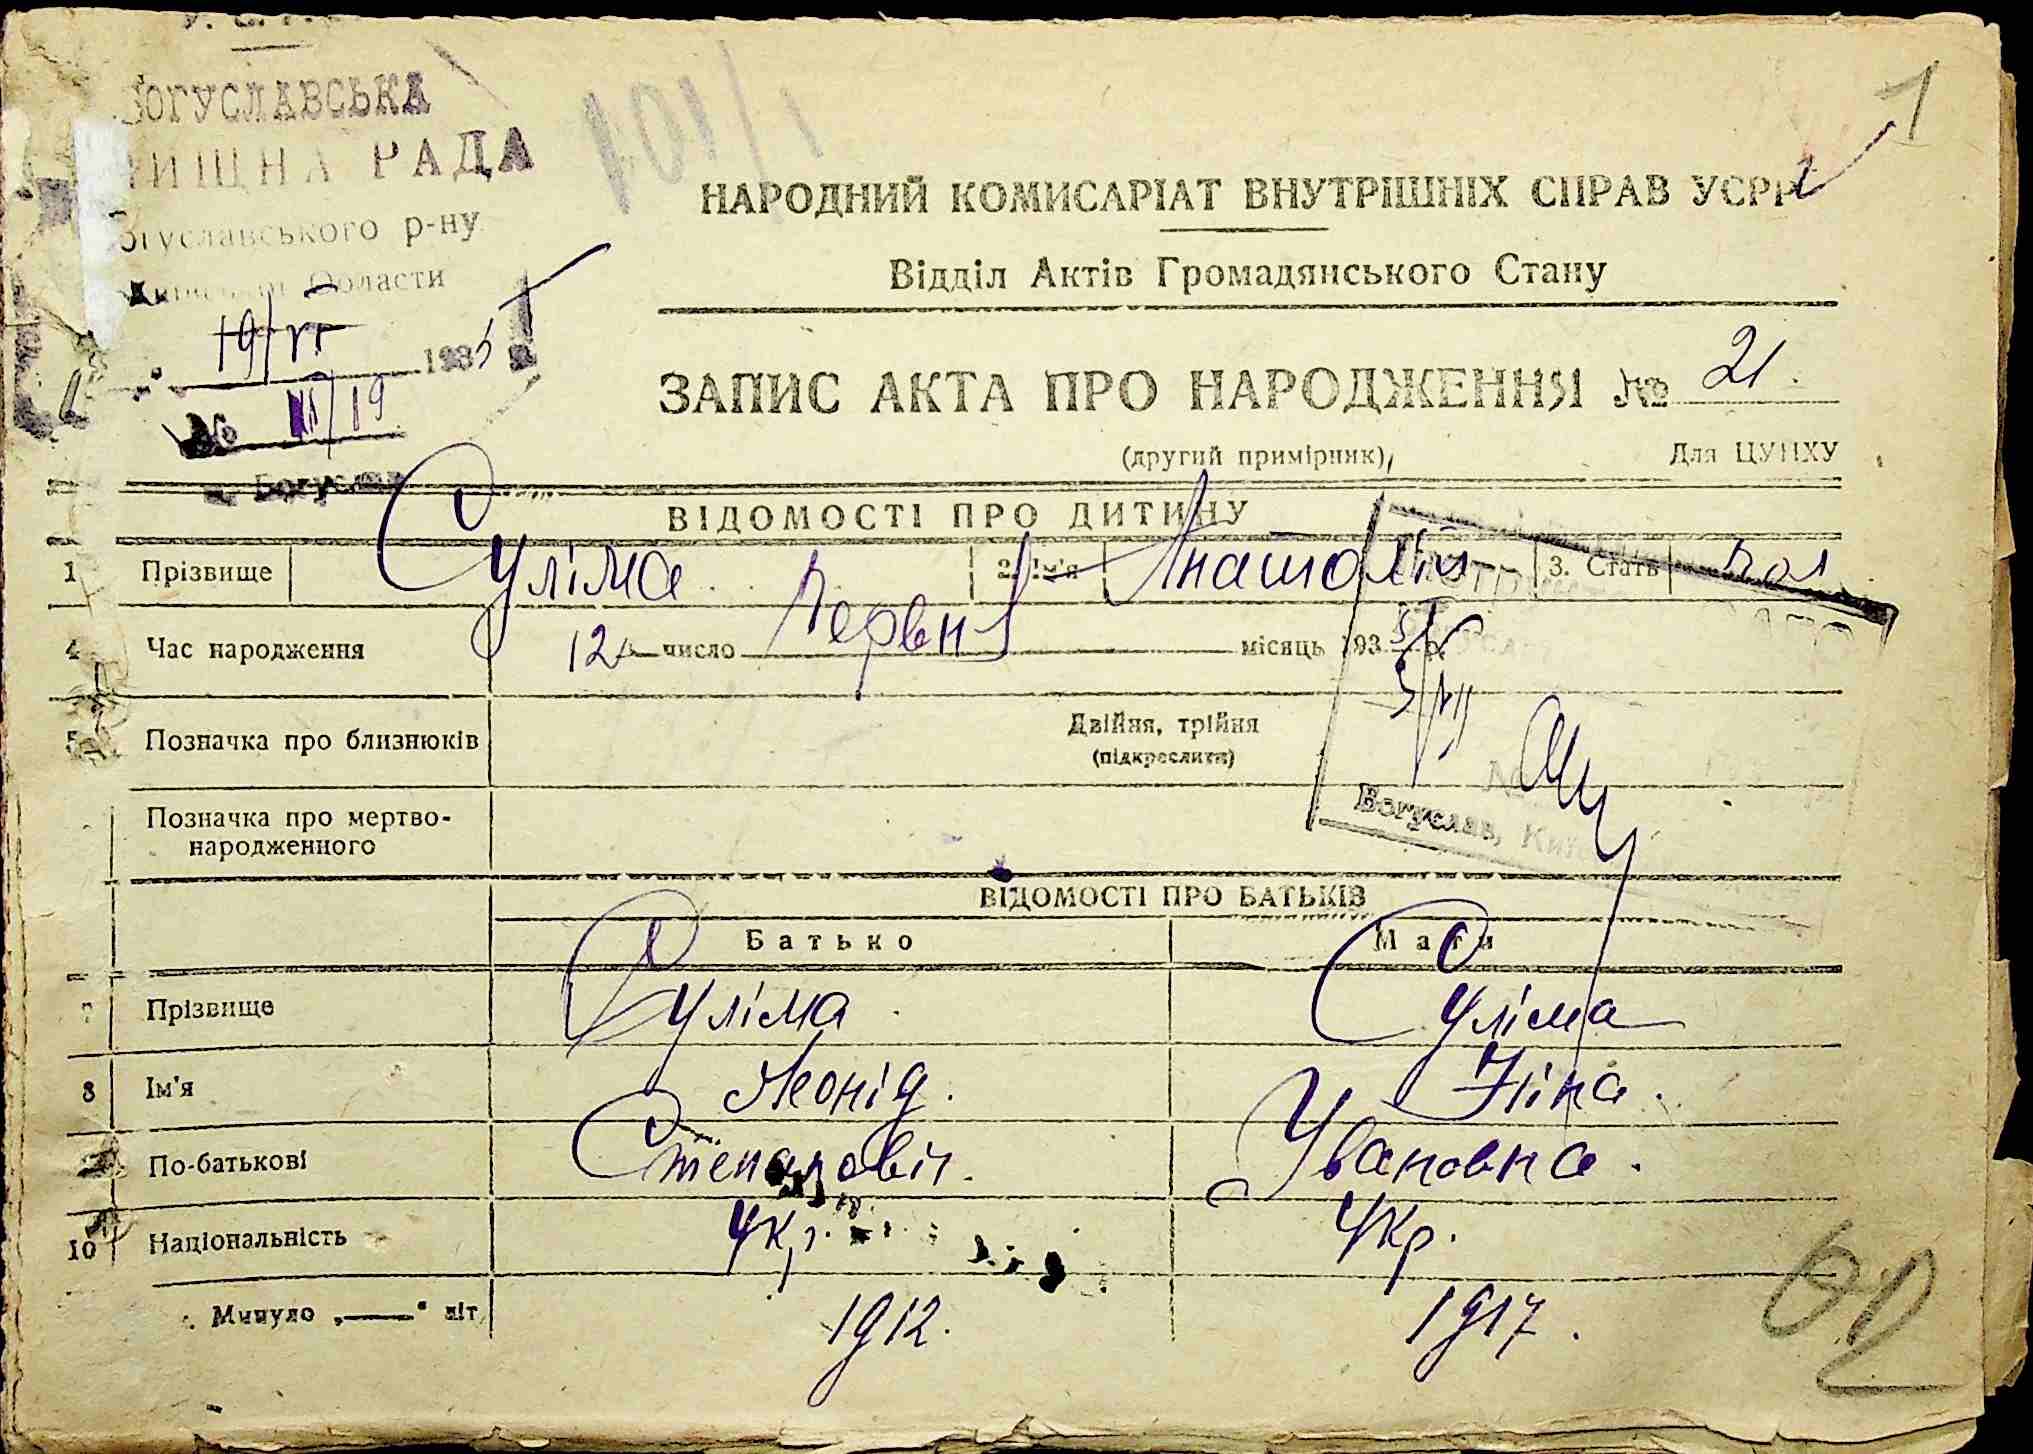 У. С. Р. Р.
БОГУСЛАВСЬКА
РАДА
Богуславського р-ну
Области
19/VI 1935 р.
№ 19
м. Богуслав
101/1
1
НАРОДНИЙ КОМИСАРІАТ ВНУТРІШНІХ СПРАВ УСРР
Відділ Актів Громадянського Стану
ЗАПИС АКТА ПРО НАРОДЖЕННЯ № 21
(другий примірник)
Для ЦУНХУ
ВІДОМОСТІ ПРО ДИТИНУ
1 Прізвище Суліма 2. Ім'я Анатолій 3. Стать чол
4 Час народження 12 число Червня місяць 1935 р.
5 Позначка про близнюків Двійня, трійня
(підкреслити)
Позначка про мертво-
народженного
Богуслав,
ВІДОМОСТІ ПРО БАТЬКІВ
Батько Мати
7 Прізвище Суліма Суліма
8 Ім'я Леонід. Ніна.
По-батькові Степановіч. Івановна.
10 Національність Укр. Укр.
Минуло „—" літ 1912. 1917.